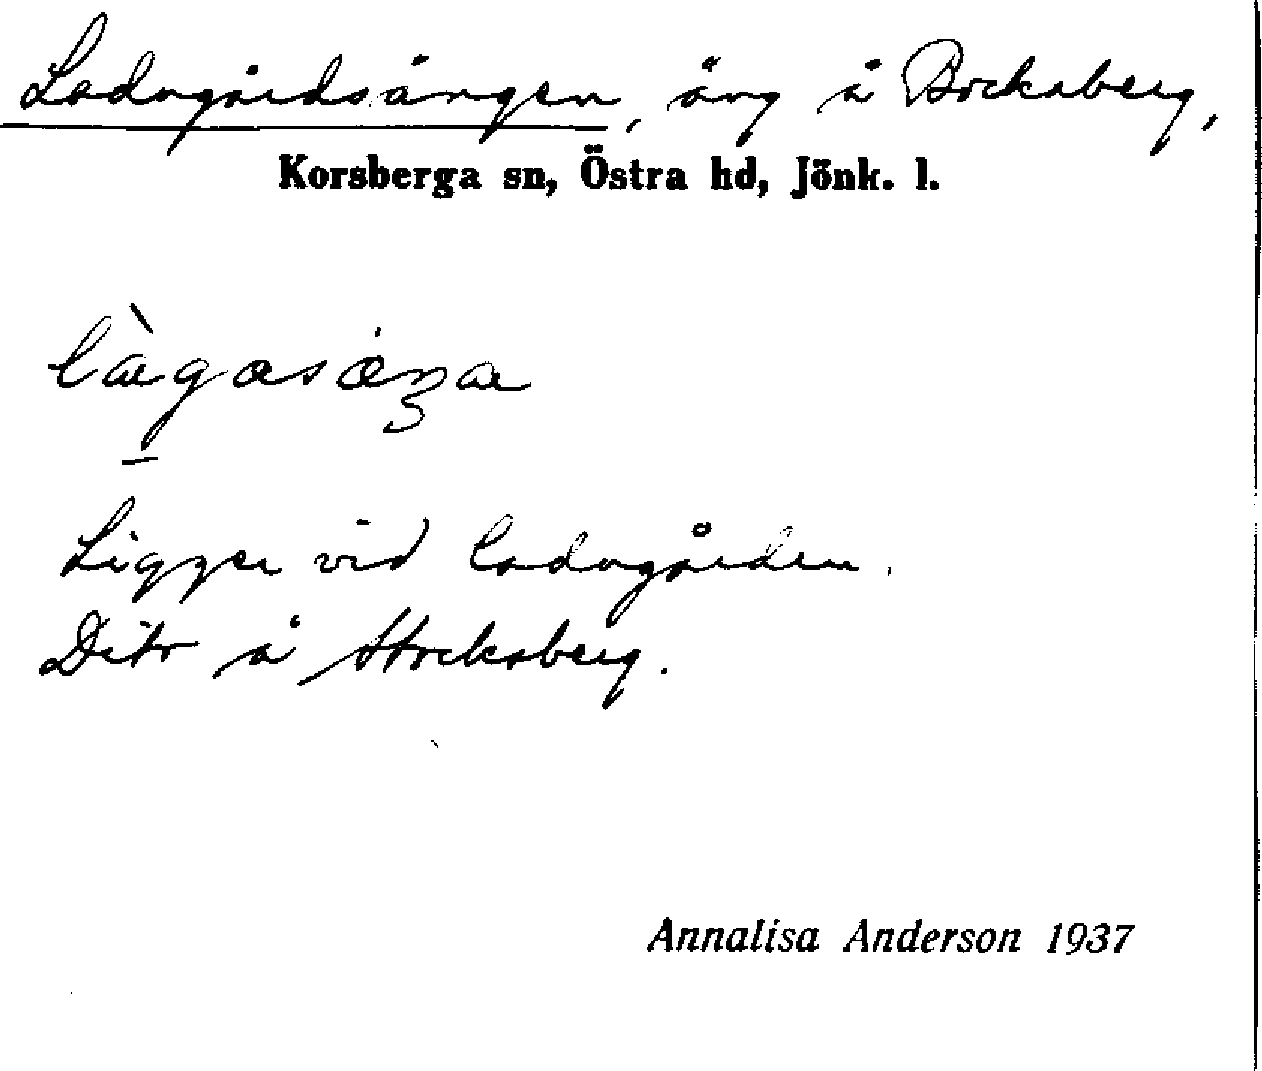 Ladugårdsängen, äng å Bocksberg,
Korsberga sn, Östra hd, Jönk. l.
Ligger vid ladugården.
Dito å Stocksberg.
Annalisa Anderson 1937